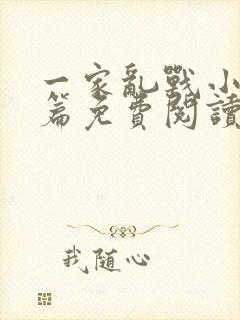 一家亂戰小
篇免費閱讀
我随心